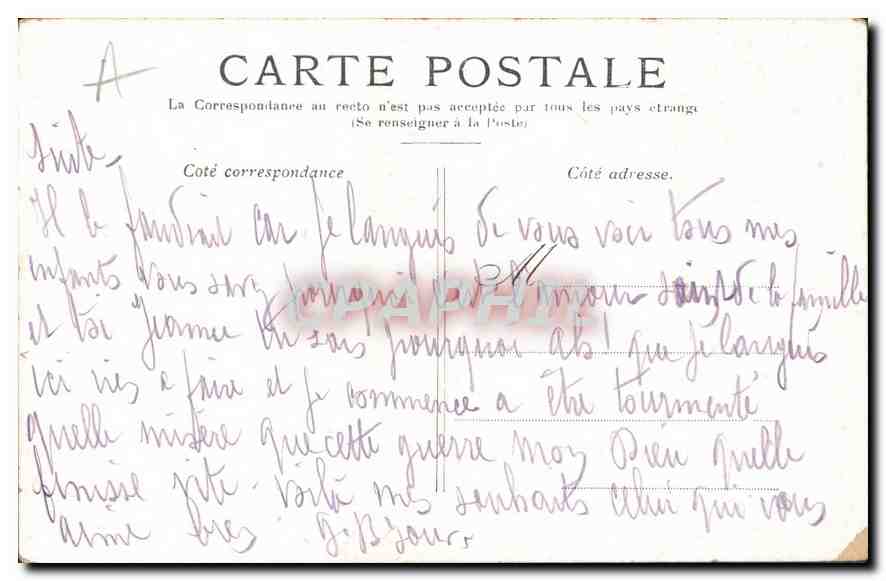 A
CARTE POSTALE
La Correspondance au recto n'est pas acceptée par tous les pays étrange
(Se renseigner à la Poste)
Suite
Coté correspondance
Côté adresse.
Il le faudrait car je languis de vous voir tous mes
enfants vous savez pourquoi l'amour saint de la famille
et toi Jeanne tu sais pourquoi ah! que je languis
ici rien a faire et je commence a être tourmenté
quelle misère que cette guerre mon Dieu quelle
finisse vite. voilà mes souhaits celui qui vous
aime bien
CPAPHIL